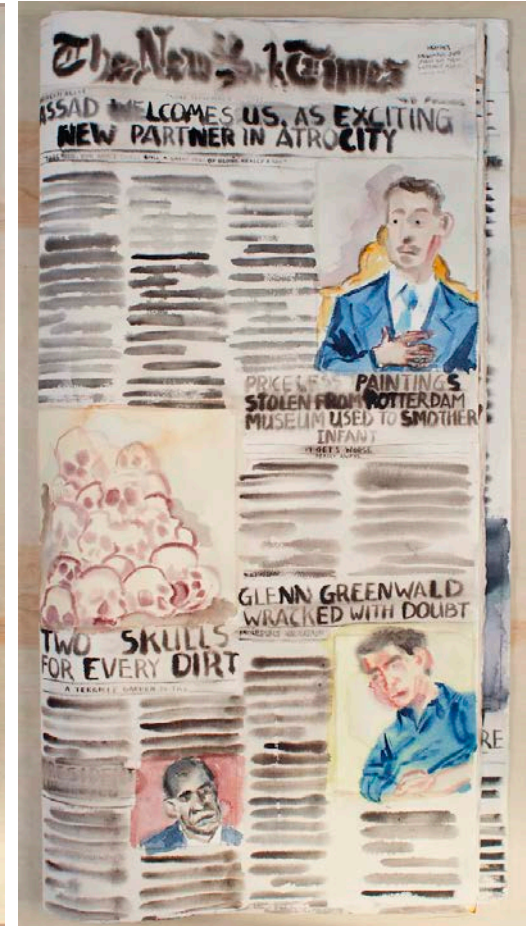 The New York Times
ASSAD WELCOMES US, AS EXCITING
NEW PARTNER IN ATROCITY
PRICELESS PAINTINGS
STOLEN FROM ROTTERDAM
MUSEUM USED TO SMOTHER
INFANT
IT GETS WORSE
GLENN GREENWALD
WRACKED WITH DOUBT
TWO SKULLS
FOR EVERY DIRT
A TERRIBLE
PRESIDENT
RE